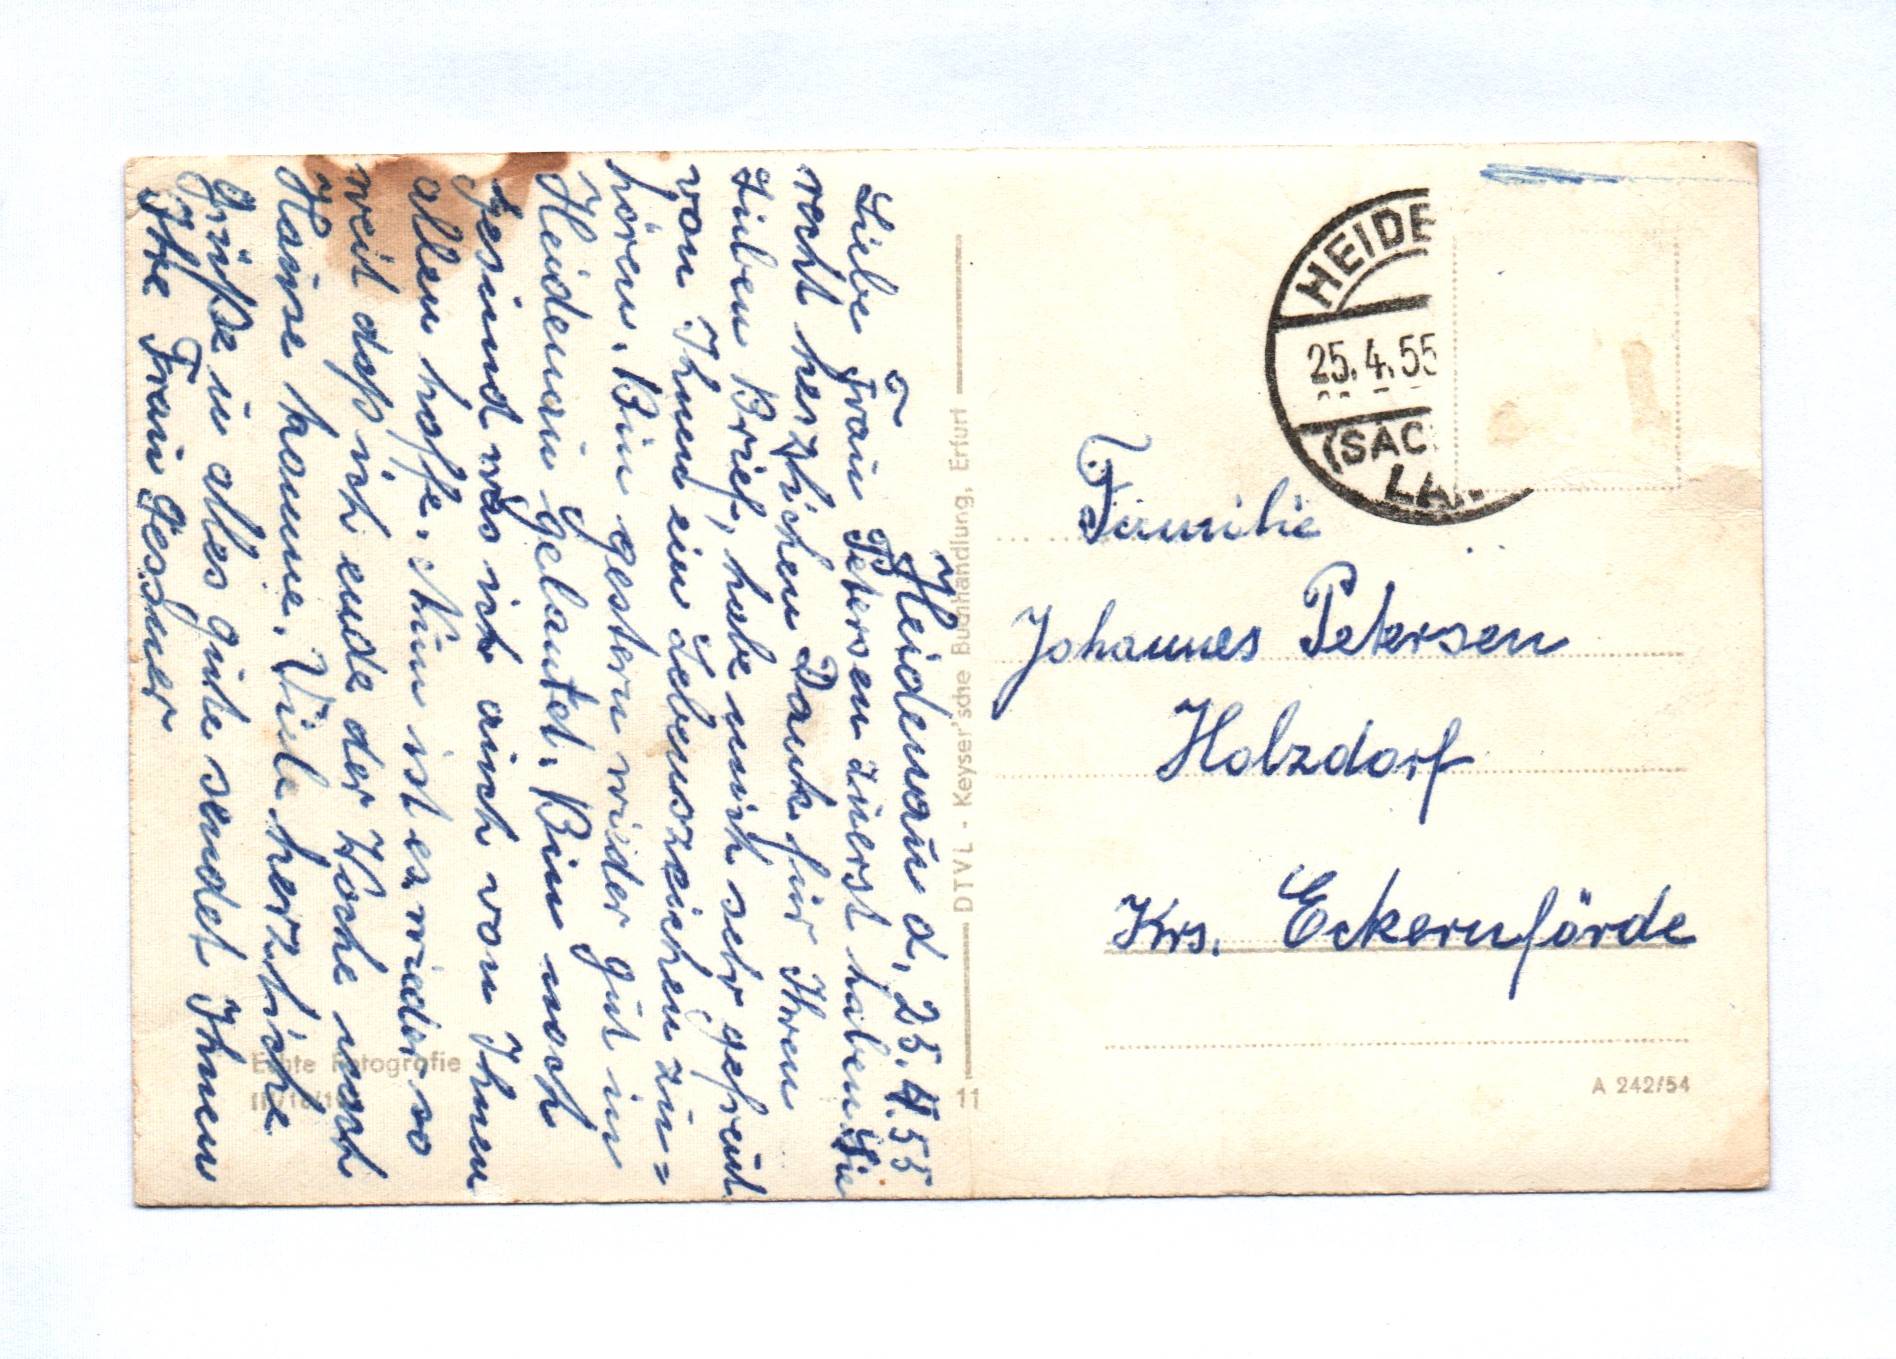 Heidenau d. 25.4.55
Liebe Frau Petersen zuerst haben Sie
recht herzlichen Dank für Ihren
lieben Brief, habe mich sehr gefreut
von Ihnen ein Lebenszeichen zu=
hören. Bin gestern wieder gut in
Heidenau gelantet. Bin noch
gesund was ich auch von Ihnen
allen hoffe. Nun ist es wieder so
weit dass ich ende der Woche nach
Hause komme. Viele herzliche
Grüße u alles gute sendet Ihnen
Ihre Frau Gessner
DTVL - Keyser'sche Buchhandlung, Erfurt
Echte Fotografie
11
HEIDE
25.4.55
(SAC
LAN
Familie
Johannes Petersen
Holzdorf
Krs. Eckernförde
A 242/54